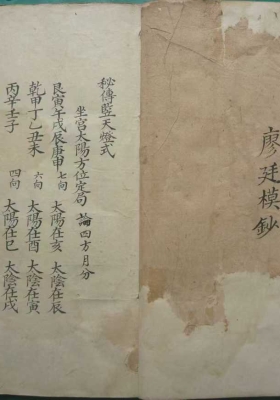 廖廷模鈔
秘傳藍天燈式
坐宮太陽方位定局 論四方月分
艮寅午戌辰庚申 七向 太陽在亥 太陰在辰
乾甲丁乙丑未 六向 太陽在酉 太陰在寅
丙辛壬子 四向 太陽在巳 太陰在戌